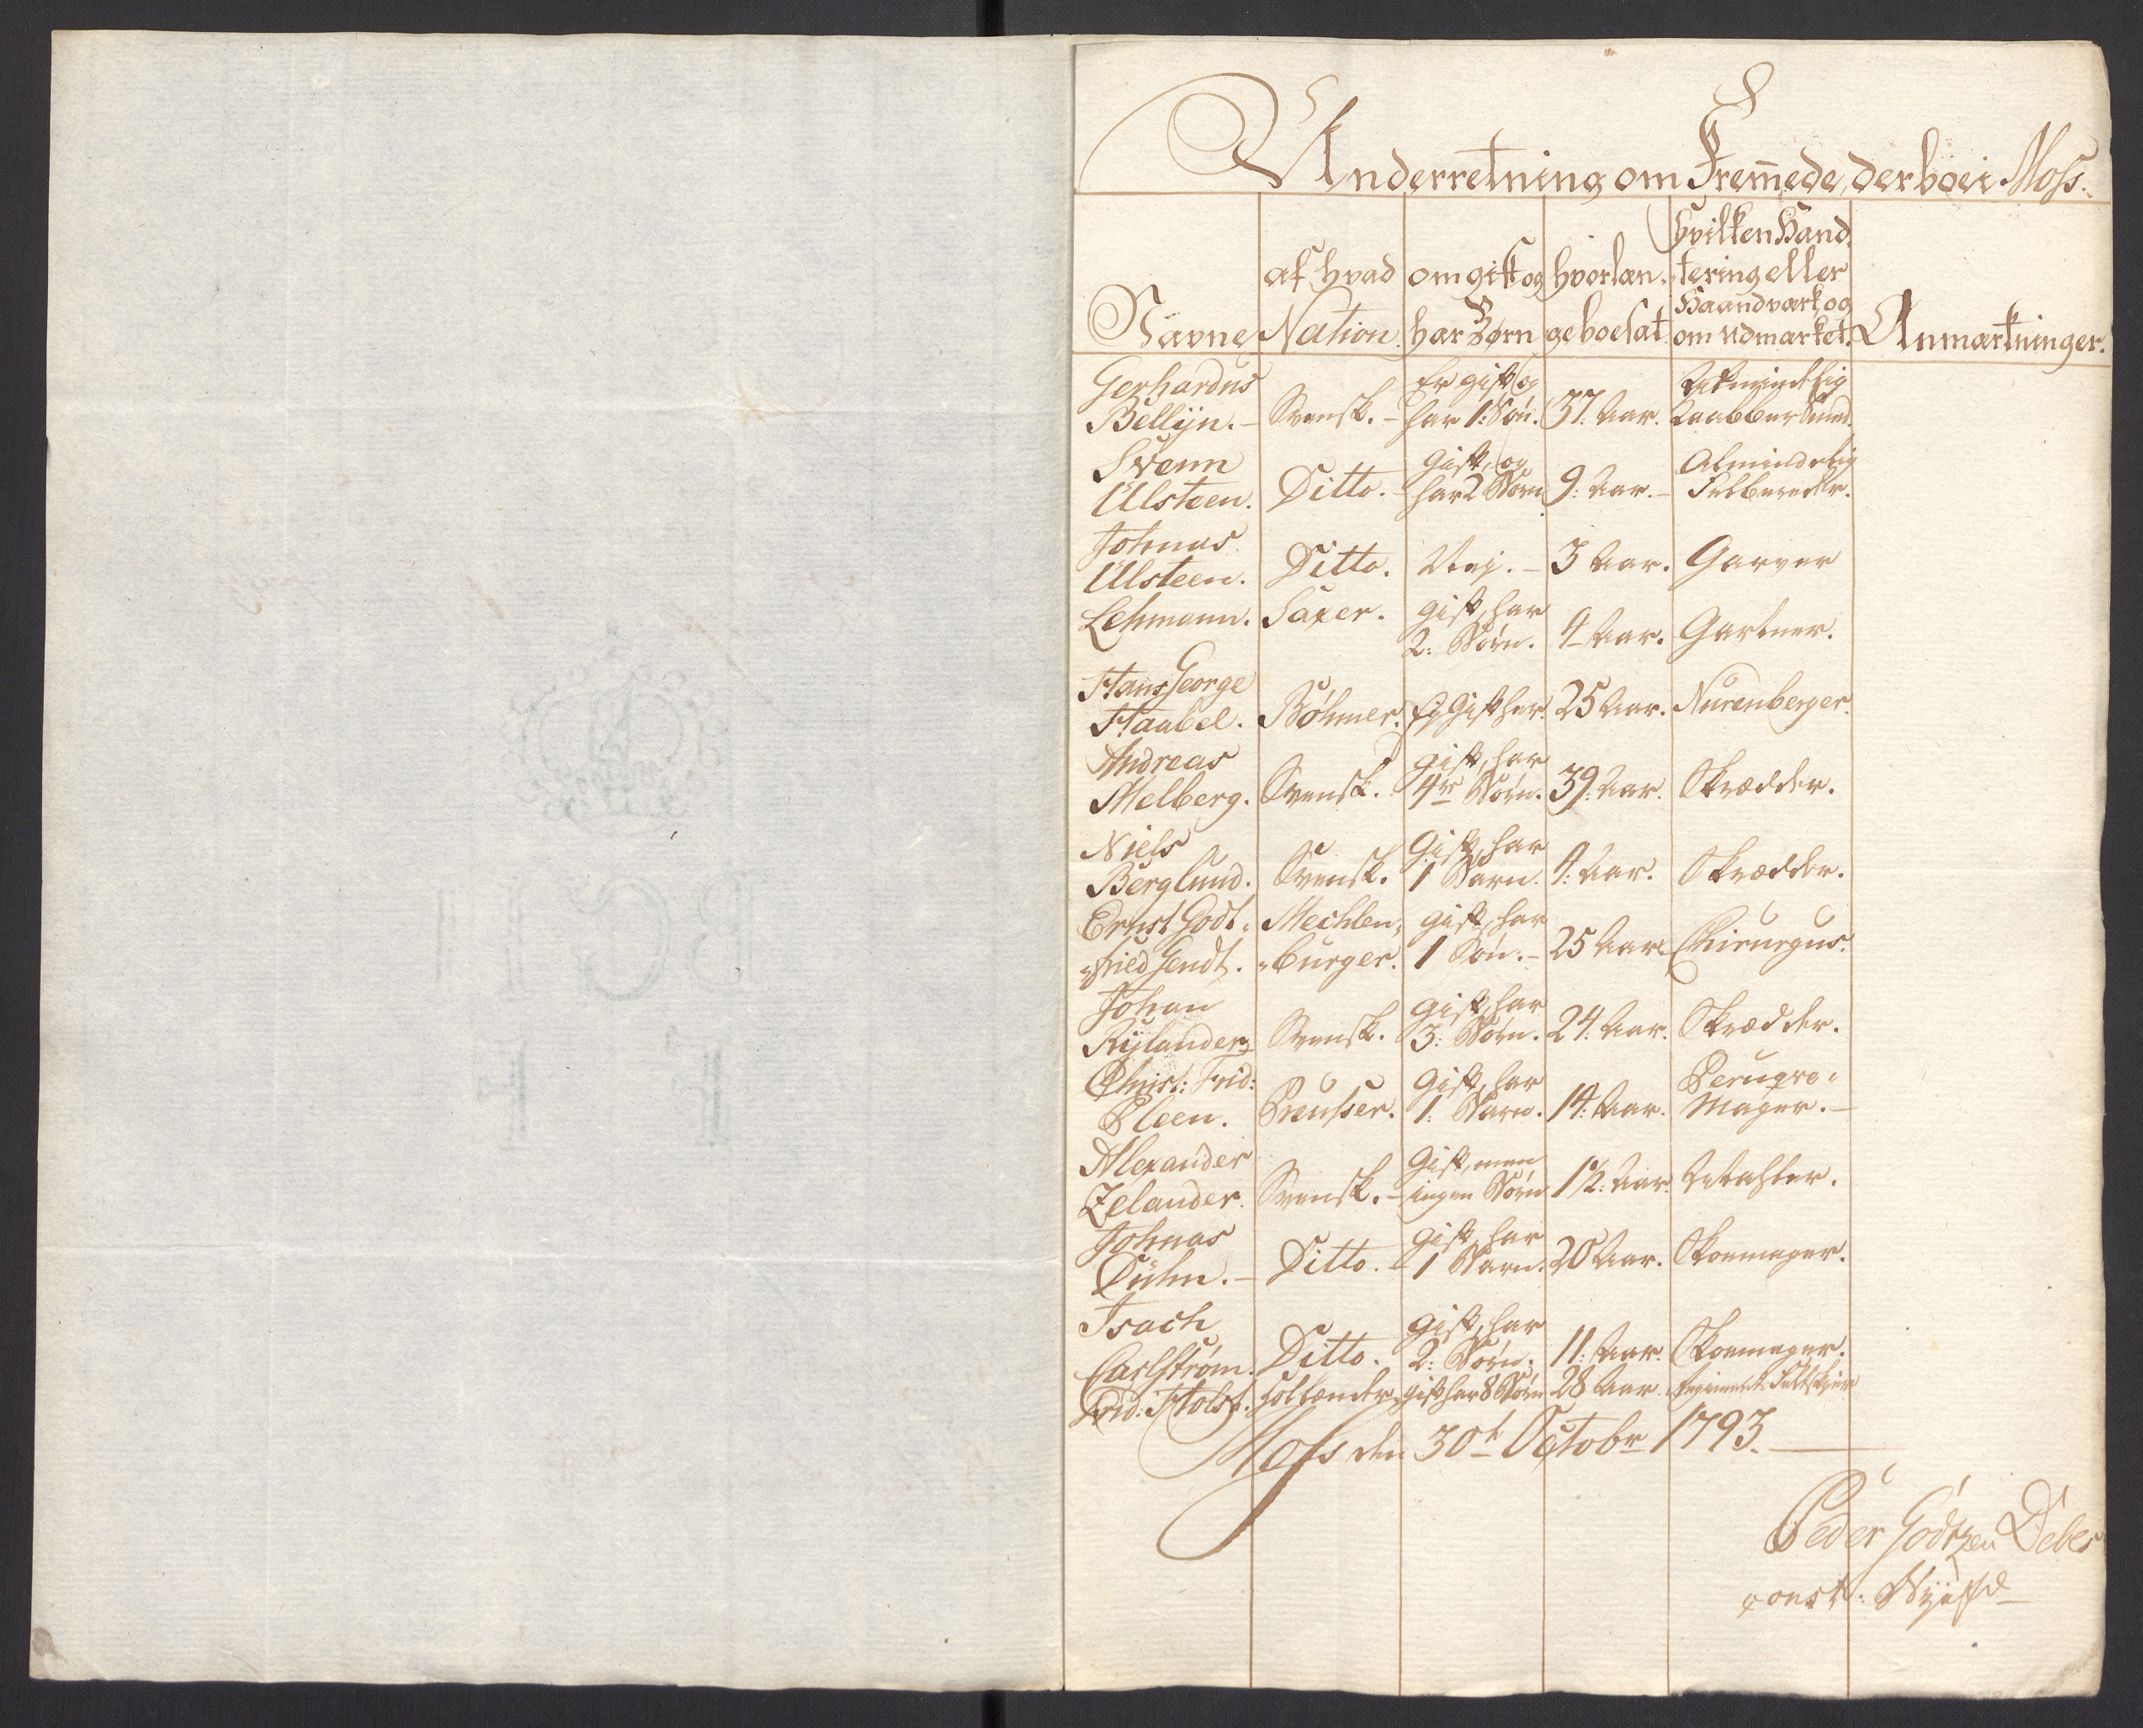 Underretning om Fremede, der boe i Moss.
Navne | af hvad Nation. | om gift og har Børn | hvorlænge boesat | Hvilken Handtering eller Haandværk og om udmærket. | Anmærkninger.
Gerhardus Bellijn. | Svensk. | Er gift og har 1: Søn. | 37: Aar. |
Svenn Ulsteen. | Ditto. | Gift, og har 2 Børn | 9: Aar. | Almindelig Feldbereder.
Johnas Ulsteen. | Ditto. | Nej. | 3 Aar. | Garver
Lehmann. | Saxer. | gift, har 2: Børn. | 4 Aar. | Gartner.
Hans George Haabel. | Bøhmer. | Ej Gift har. | 25 Aar. | Nurenberger.
Andreas Melberg. | Svensk. | gift, har 4re Børn. | 39: Aar. | Skrædder.
Niels Berglund. | Svensk. | Gift, har 1 Barn. | 4: Aar. | Skrædder.
Ernst Godtfried Gendt. | Mechlenburger. | gift, har 1 Søn. | 25 Aar. | Chirurgus.
Johan Rylander | Svensk. | Gift, har 3: Børn. | 24: Aar. | Skrædder.
Christ: Frid: Pleen. | Preusser. | Gift, har 1: Barn. | 14: Aar. | Peruqvemager.
Alexander Zelander. | Svensk. | Gift, men ingen Børn | 1 1/2: Aar. |
Johnas Duhn. | Ditto. | gift, har 1 Barn. | 20 Aar. | Skoemager.
Isach Carlstrøm. | Ditto. | gift, har 2: Børn. | 11: Aar. | Skoemager.
Frid: Holst. | Hollænder | gift har 8 Børn | 28 Aar. | Regiments Feltskier
Moss den 30t Octobr 1793.
Peder Godtzen Debes
const: Byefd